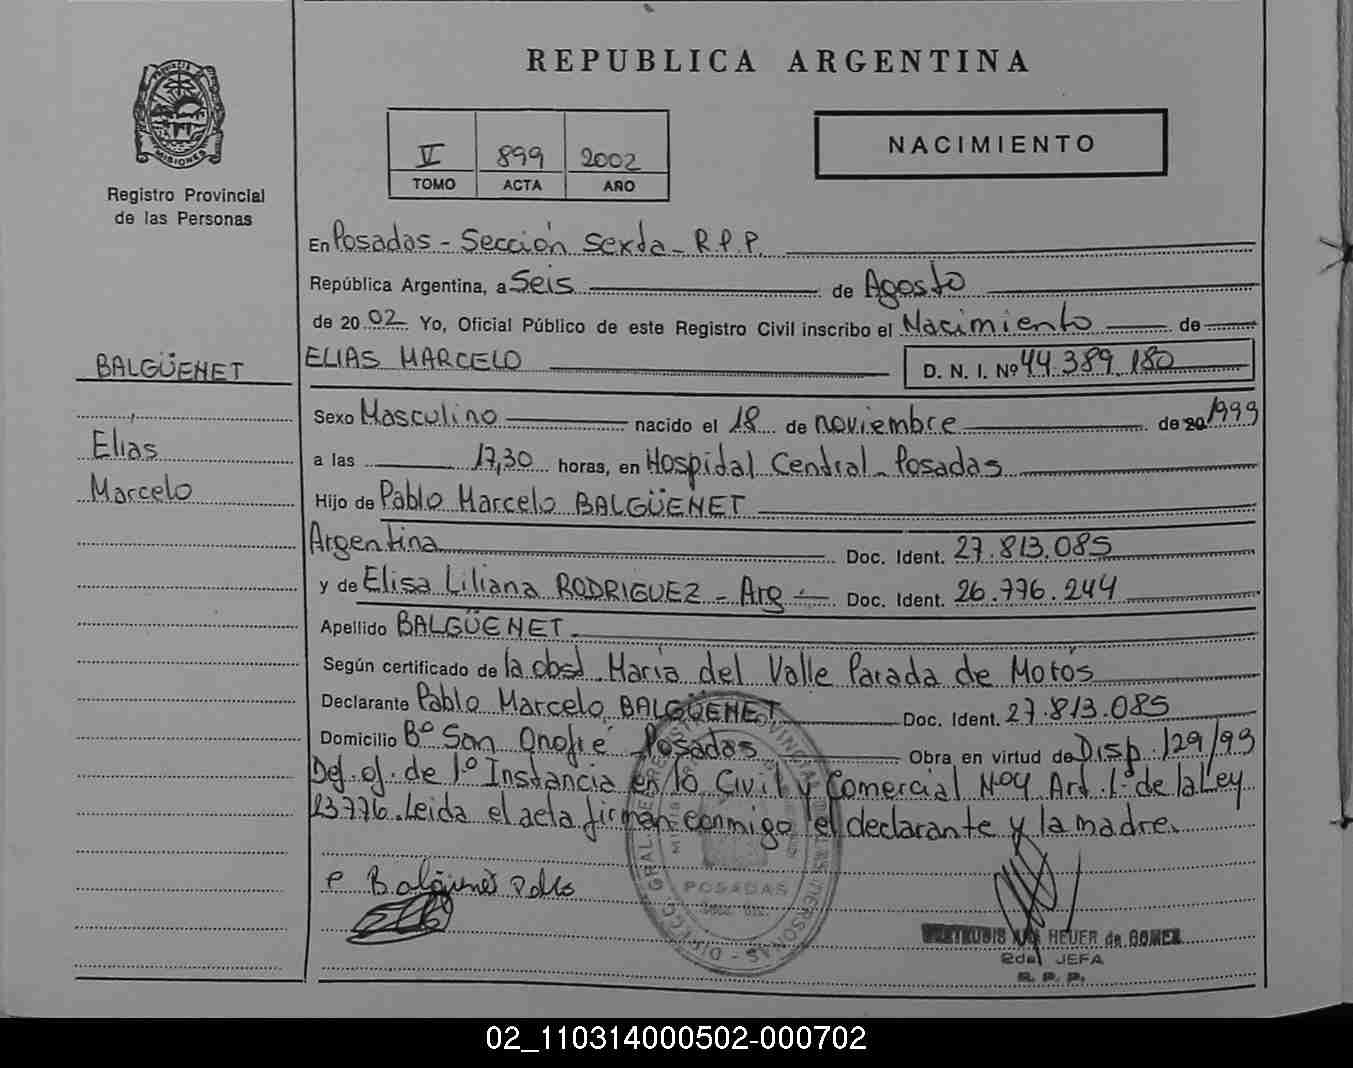 REPUBLICA ARGENTINA
PROVINCIA DE
MISIONES
Registro Provincial
de las Personas
VI 899 2002
TOMO ACTA AÑO
NACIMIENTO
En Posadas - Sección Sexta - R.P.P.
República Argentina, a Seis de Agosto
de 2002 Yo, Oficial Público de este Registro Civil inscribo el Nacimiento de
ELIAS MARCELO D. N. I. Nº 44.389.180
BALGÜENET
Elias
Marcelo
Sexo Masculino nacido el 18 de noviembre de 20 1999
a las 17,30 horas, en Hospital Central - Posadas
Hijo de Pablo Marcelo BALGÜENET
Argentina Doc. Ident. 27.813.085
y de Elisa Liliana RODRIGUEZ - Arg - Doc. Ident. 26.776.244
Apellido BALGÜENET
Según certificado de la obst. Maria del Valle Parada de Motós
Declarante Pablo Marcelo BALGÜENET Doc. Ident. 27.813.085
Domicilio Bº San Onofré Posadas Obra en virtud de Disp. 129/99
Def. of. de 1º Instancia en lo Civil y Comercial Nº4 Art. 1º de la Ley
23776. Leida el acta firman conmigo el declarante y la madre.
POSADAS
HEUER de GOMEZ
2da JEFA
R. P. P.
02_110314000502-000702